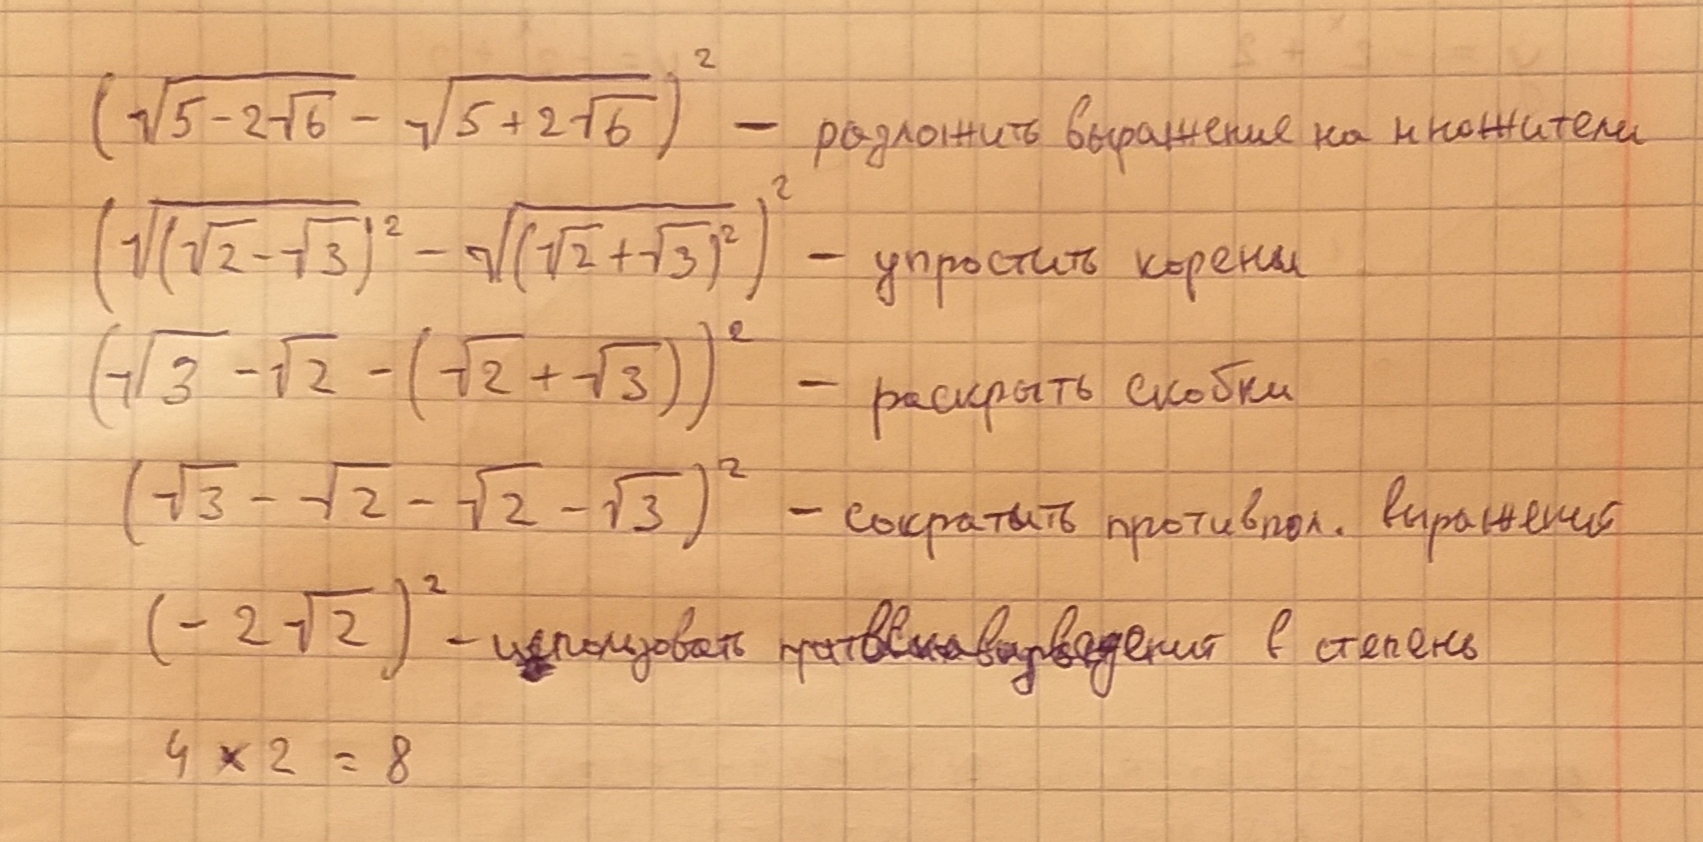 (√(5-2√6) - √(5+2√6))² - разложить выражение на множители
(√((√2-√3)²) - √((√2+√3)²))² - упростить корены
(√3 - √2 - (√2 + √3))² - раскрыть скобки
(√3 - √2 - √2 - √3)² - сократить противпол. выражения
(-2√2)² - использовать в степень
4 × 2 = 8